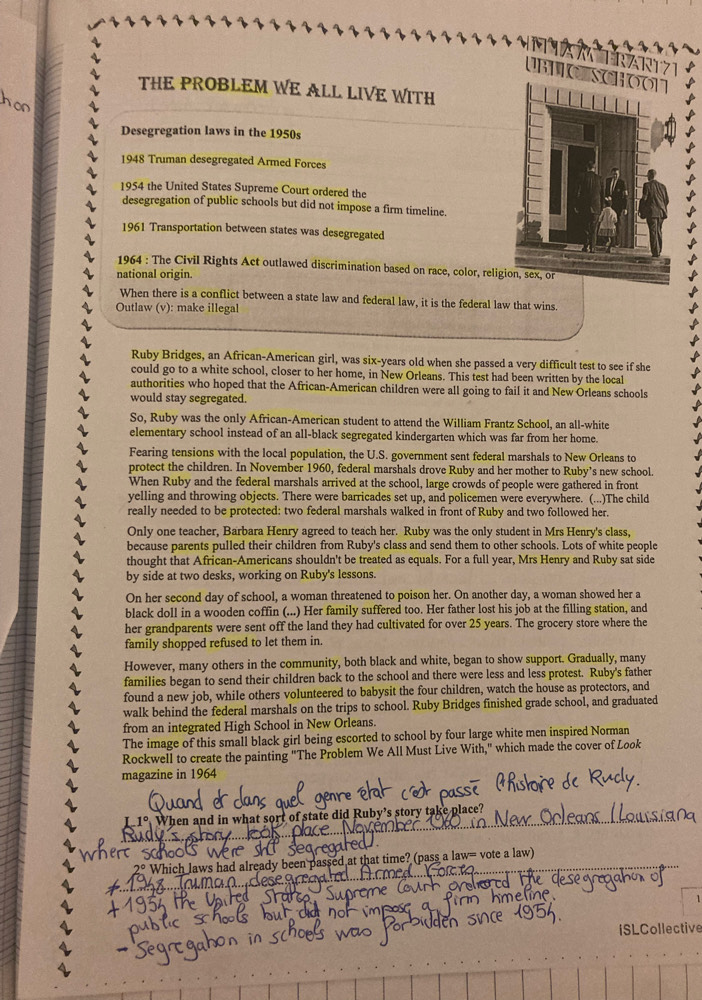 hon
WILLIAM FRANTZ
PUBLIC SCHOOL
THE PROBLEM WE ALL LIVE WITH
Desegregation laws in the 1950s
1948 Truman desegregated Armed Forces
1954 the United States Supreme Court ordered the
desegregation of public schools but did not impose a firm timeline.
1961 Transportation between states was desegregated
1964 : The Civil Rights Act outlawed discrimination based on race, color, religion, sex, or
national origin.
When there is a conflict between a state law and federal law, it is the federal law that wins.
Outlaw (v): make illegal
Ruby Bridges, an African-American girl, was six-years old when she passed a very difficult test to see if she
could go to a white school, closer to her home, in New Orleans. This test had been written by the local
authorities who hoped that the African-American children were all going to fail it and New Orleans schools
would stay segregated.
So, Ruby was the only African-American student to attend the William Frantz School, an all-white
elementary school instead of an all-black segregated kindergarten which was far from her home.
Fearing tensions with the local population, the U.S. government sent federal marshals to New Orleans to
protect the children. In November 1960, federal marshals drove Ruby and her mother to Ruby's new school.
When Ruby and the federal marshals arrived at the school, large crowds of people were gathered in front
yelling and throwing objects. There were barricades set up, and policemen were everywhere. (...)The child
really needed to be protected: two federal marshals walked in front of Ruby and two followed her.
Only one teacher, Barbara Henry agreed to teach her. Ruby was the only student in Mrs Henry's class,
because parents pulled their children from Ruby's class and send them to other schools. Lots of white people
thought that African-Americans shouldn't be treated as equals. For a full year, Mrs Henry and Ruby sat side
by side at two desks, working on Ruby's lessons.
On her second day of school, a woman threatened to poison her. On another day, a woman showed her a
black doll in a wooden coffin (...) Her family suffered too. Her father lost his job at the filling station, and
her grandparents were sent off the land they had cultivated for over 25 years. The grocery store where the
family shopped refused to let them in.
However, many others in the community, both black and white, began to show support. Gradually, many
families began to send their children back to the school and there were less and less protest. Ruby's father
found a new job, while others volunteered to babysit the four children, watch the house as protectors, and
walk behind the federal marshals on the trips to school. Ruby Bridges finished grade school, and graduated
from an integrated High School in New Orleans.
The image of this small black girl being escorted to school by four large white men inspired Norman
Rockwell to create the painting "The Problem We All Must Live With," which made the cover of Look
magazine in 1964
Quand et dans quel genre état c'est passé l'histoire de Rudy.
I. 1° When and in what sort of state did Ruby's story take place?
Rudy's story took place November 1960 in New Orleans (Louisiana
where schools were still segregated).
2° Which laws had already been passed at that time? (pass a law= vote a law)
+ 1948 Truman desegregated Armed Forces
+ 1954 the United States Supreme Court ordered the desegregation of
public schools but did not impose a firm timeline.
- Segregation in schools was forbidden since 1954.
1
iSLCollective